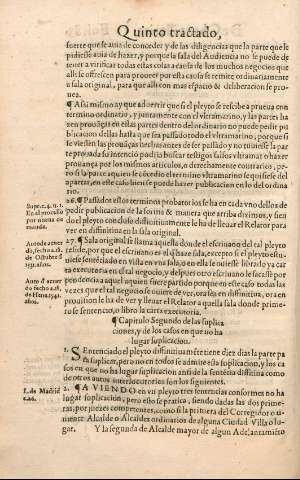 Quinto tractado,
suerte que se auia de conceder y de las diligencias que la parte que le
pidiesse auia de hazer, y porque la sala del Audiencia no se puede de
tener a virificar todas estas cosas a causa de los muchos negocios que
alli se offrescen para proueer por esta causa se remite ordinariamente
a sala original, para que alli con mas espacio & deliberacion se proue
a.
¶ Assi mismo ay que aduertir que si el pleyto se rescibe a prueua con
termino ordinario, y juntamente con el vltramarino, y las partes ha
zen prouãças en estas partes dentro del ordinario no puede pedir pu
blicacion dellas hasta que sea passado todo el vltramarino, porque si
se viessen las prouãças hechas antes de ser passado y no tuuiesse la par
te que hizo presentacion
prouança por los mismos articulos, o derechamente contrarios, pe
ro si la parte a quien se cõcedio el termino vltramarino se quisiesse del
apartar, en este caso bien se puede hazer publicacion en lo del ordina
rio.
Supe. c. 4. n. 1.
En el processo
por nueua de
manda.
26. ¶ Passados estos terminos probatorios se ha en cada vno dellos de
pedir publicacion de la forma & manera que arriba diximos, y sien
do el pleyto concluso diffinitiuamente le ha de lleuar el Relator para
ver en diffinitiua en la sala original.
Auto de acuer
do, fecho a .6.
de Octubre d
1531. años.
27. ¶ Sala original se llama aquella dõde el escriuano del tal pleyto
reside, por que los escriuanos
uiesse sentẽciado en Villa en vna sala, o en ella
executoria en el tal negocio, y despues otro escriuano le sacasse por
Auto d acuer
do fecho a 18.
de Hene. 1541.
años.
pendencia a aquel suere partido porque en este caso todas las
vezes que el tal negocio se ouiere de ver, ora sea en diffinitiua, ora en
prouision le ha de ver y lleuar el Relator a aquella sala donde prime
ro se sentencio, o libro la carta executoria.
¶ Capitulo Segundo de las suplica
ciones, y de los casos en que no ha
lugar suplicacion.
1. Sentenciado el pleyto diffinitiuamẽte tiene diez dias la parte pa
ra suplicar, pero no en todos se admite esta suplicacion, y los ca
sos en que no ha lugar suplicacion ansi de la sentẽcia diffinitiua como
de otros autos interlocutorios son los siguientes.
L. de Madrid
c. 26.
2. ¶ AVIENDO en vn pleyto tres sentencias conformes no ha
lugar suplicacion, pero esto se pratica, siendo dadas las dos prime-
ras, por juezes competentes, como si la primera del Corregidor o te-
niente Alcalde o Alcaldes ordinarios de alguna Ciudad Villa o lu-
gar. Y la segunda de Alcalde mayor de algun Adelantamiẽto